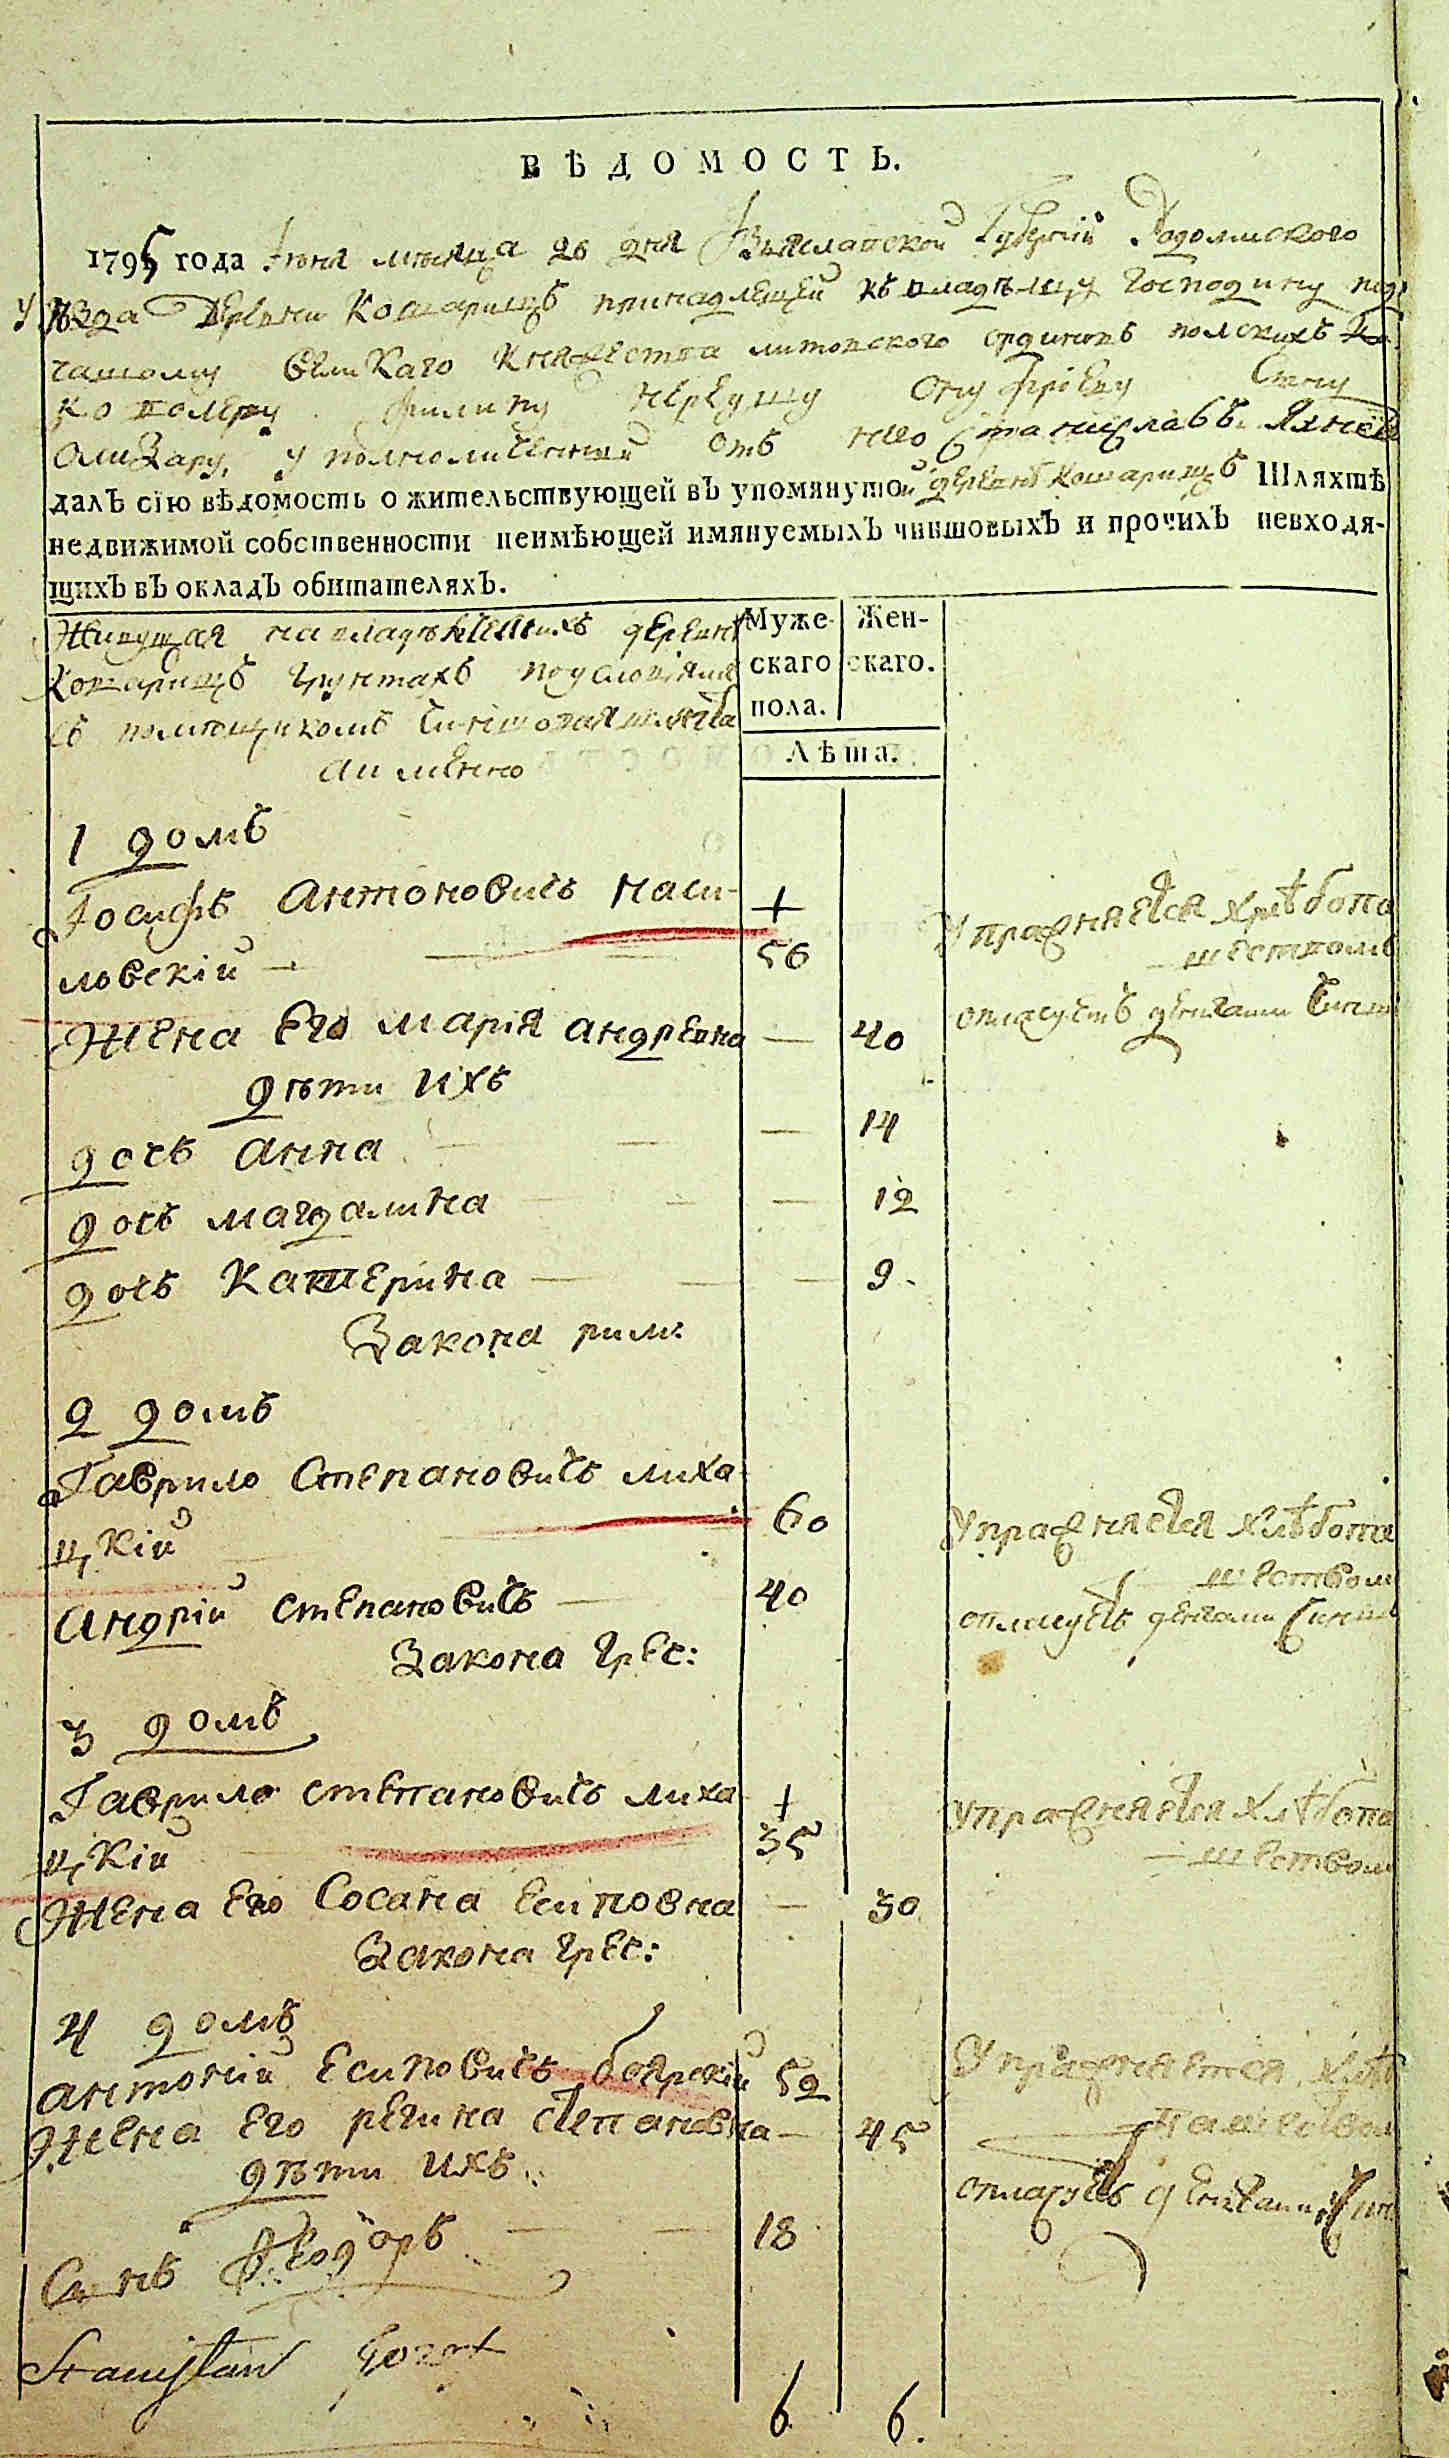 ВѢДОМОСТЬ.
1795 года Іюня мѣсяца 26 дня Изяславской Губерніи Радомыского
уѣзда Деревни Кошарищъ принадлежщей къ владѣлцу Господину под
чашому Великаго Княжества литовского ординовъ полскихъ Ка
Филипу Нереушу сыну
Олизару, уполномоченний отъ него Станиславъ
далъ сію вѣдомость о жительствующей въ упомянутой деревнѣ Кошарищъ Шляхтѣ
недвижимой собственности неимѣющей имянуемыхъ чиншовыхъ и прочихъ невходя-
щихъ въ окладъ обитателяхъ.
Живущая на владѣнческихъ деревни
Кошарищъ грунтахъ по условіямъ
съ помещикомъ Чиншовая шляхта
а именно
Муже-
скаго
пола.
Жен-
скаго.
Лѣта.
1 домъ
Іосифъ Антоновичъ Васи- +
ловскій — 56
Упражняется хлѣбопа
шествомъ
Жена Его Марія Андревна — 40
оплачуетъ денгами Чинш
дѣти ихъ
дочь Анна — 14
дочь Магдалина — 12
дочь Катерина — 9
Закона рим:
2 домъ
Гаврило Степановичъ Лиха-
цкій 60
Упражняется хлѣбопа
шеством
Андрій Степановичъ — 40
оплачуетъ денгами Чинш
Закона Грес:
3 домъ
Гаврило Степановичъ Лиха- +
цкій 35
Упражняется хлѣбопа
шеством
Жена Его Сосана Есиповна — 30
Закона Грес:
4 домъ
Антоній Есиповичъ Боярскій 52
Упражняется хлѣб
пашеством
Жена Его Регина Степановна — 45
дѣти ихъ
оплачуетъ денгами Чин
Сынъ Феодоръ — 18
Stanisław
6 6.